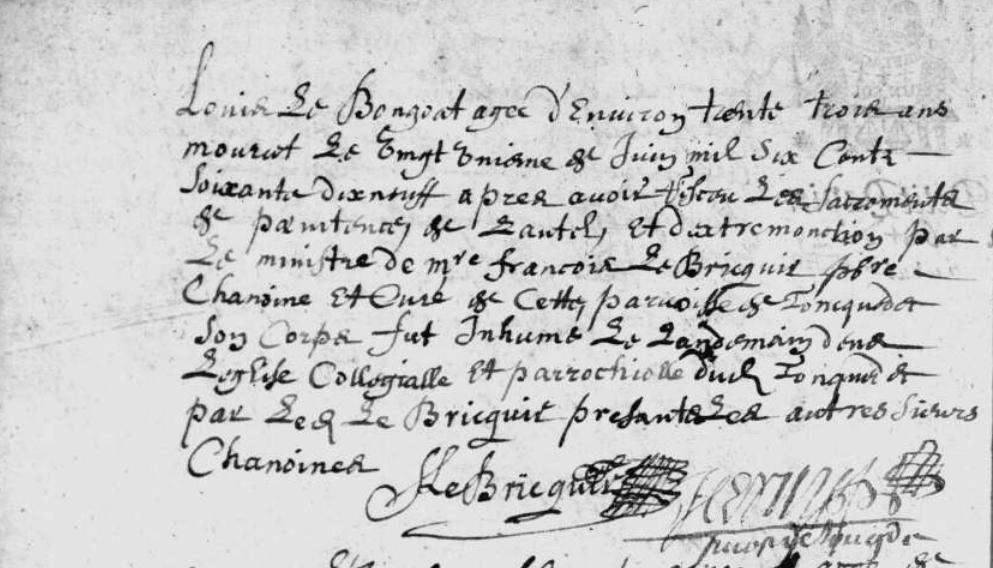 Louis Le Bongoat agee d'Environ trente trois ans
mourut Le Vingt Uniesme de Juin mil Six Cents
Soixante dixneuff apres avoir Receu Les Sacrements
de pœnitence, de Lautel, Et dextremonction par
Le ministre de mre francois Le Bricquir pbre
Chanoine Et Curé de Cette, parroisse de Toncquedec
Son Corps fut Inhumé Le Landemain dens
Leglise Collegialle Et parrochialle dud Toncquedec
par Led Le Bricquir presants Les autres Sieurs
Chanoines
Le Bricquir